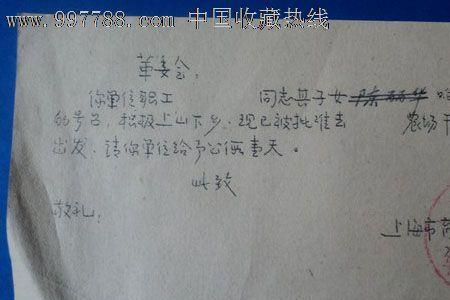 www.997788.com 中国收藏热线
革委会:
你单位职工 同志其子女 陈丽华 响
的号召,积极上山下乡,现已被批准去 农场
出发,请你单位给予公假壹天。
此致
敬礼!
上海市